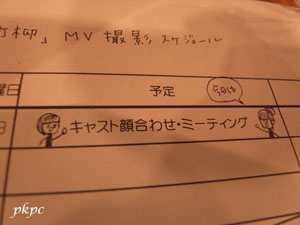 」MV撮影スケジュール
曜日 予定
今日は
日 キャスト顔合わせ・ミーティング
pkpc